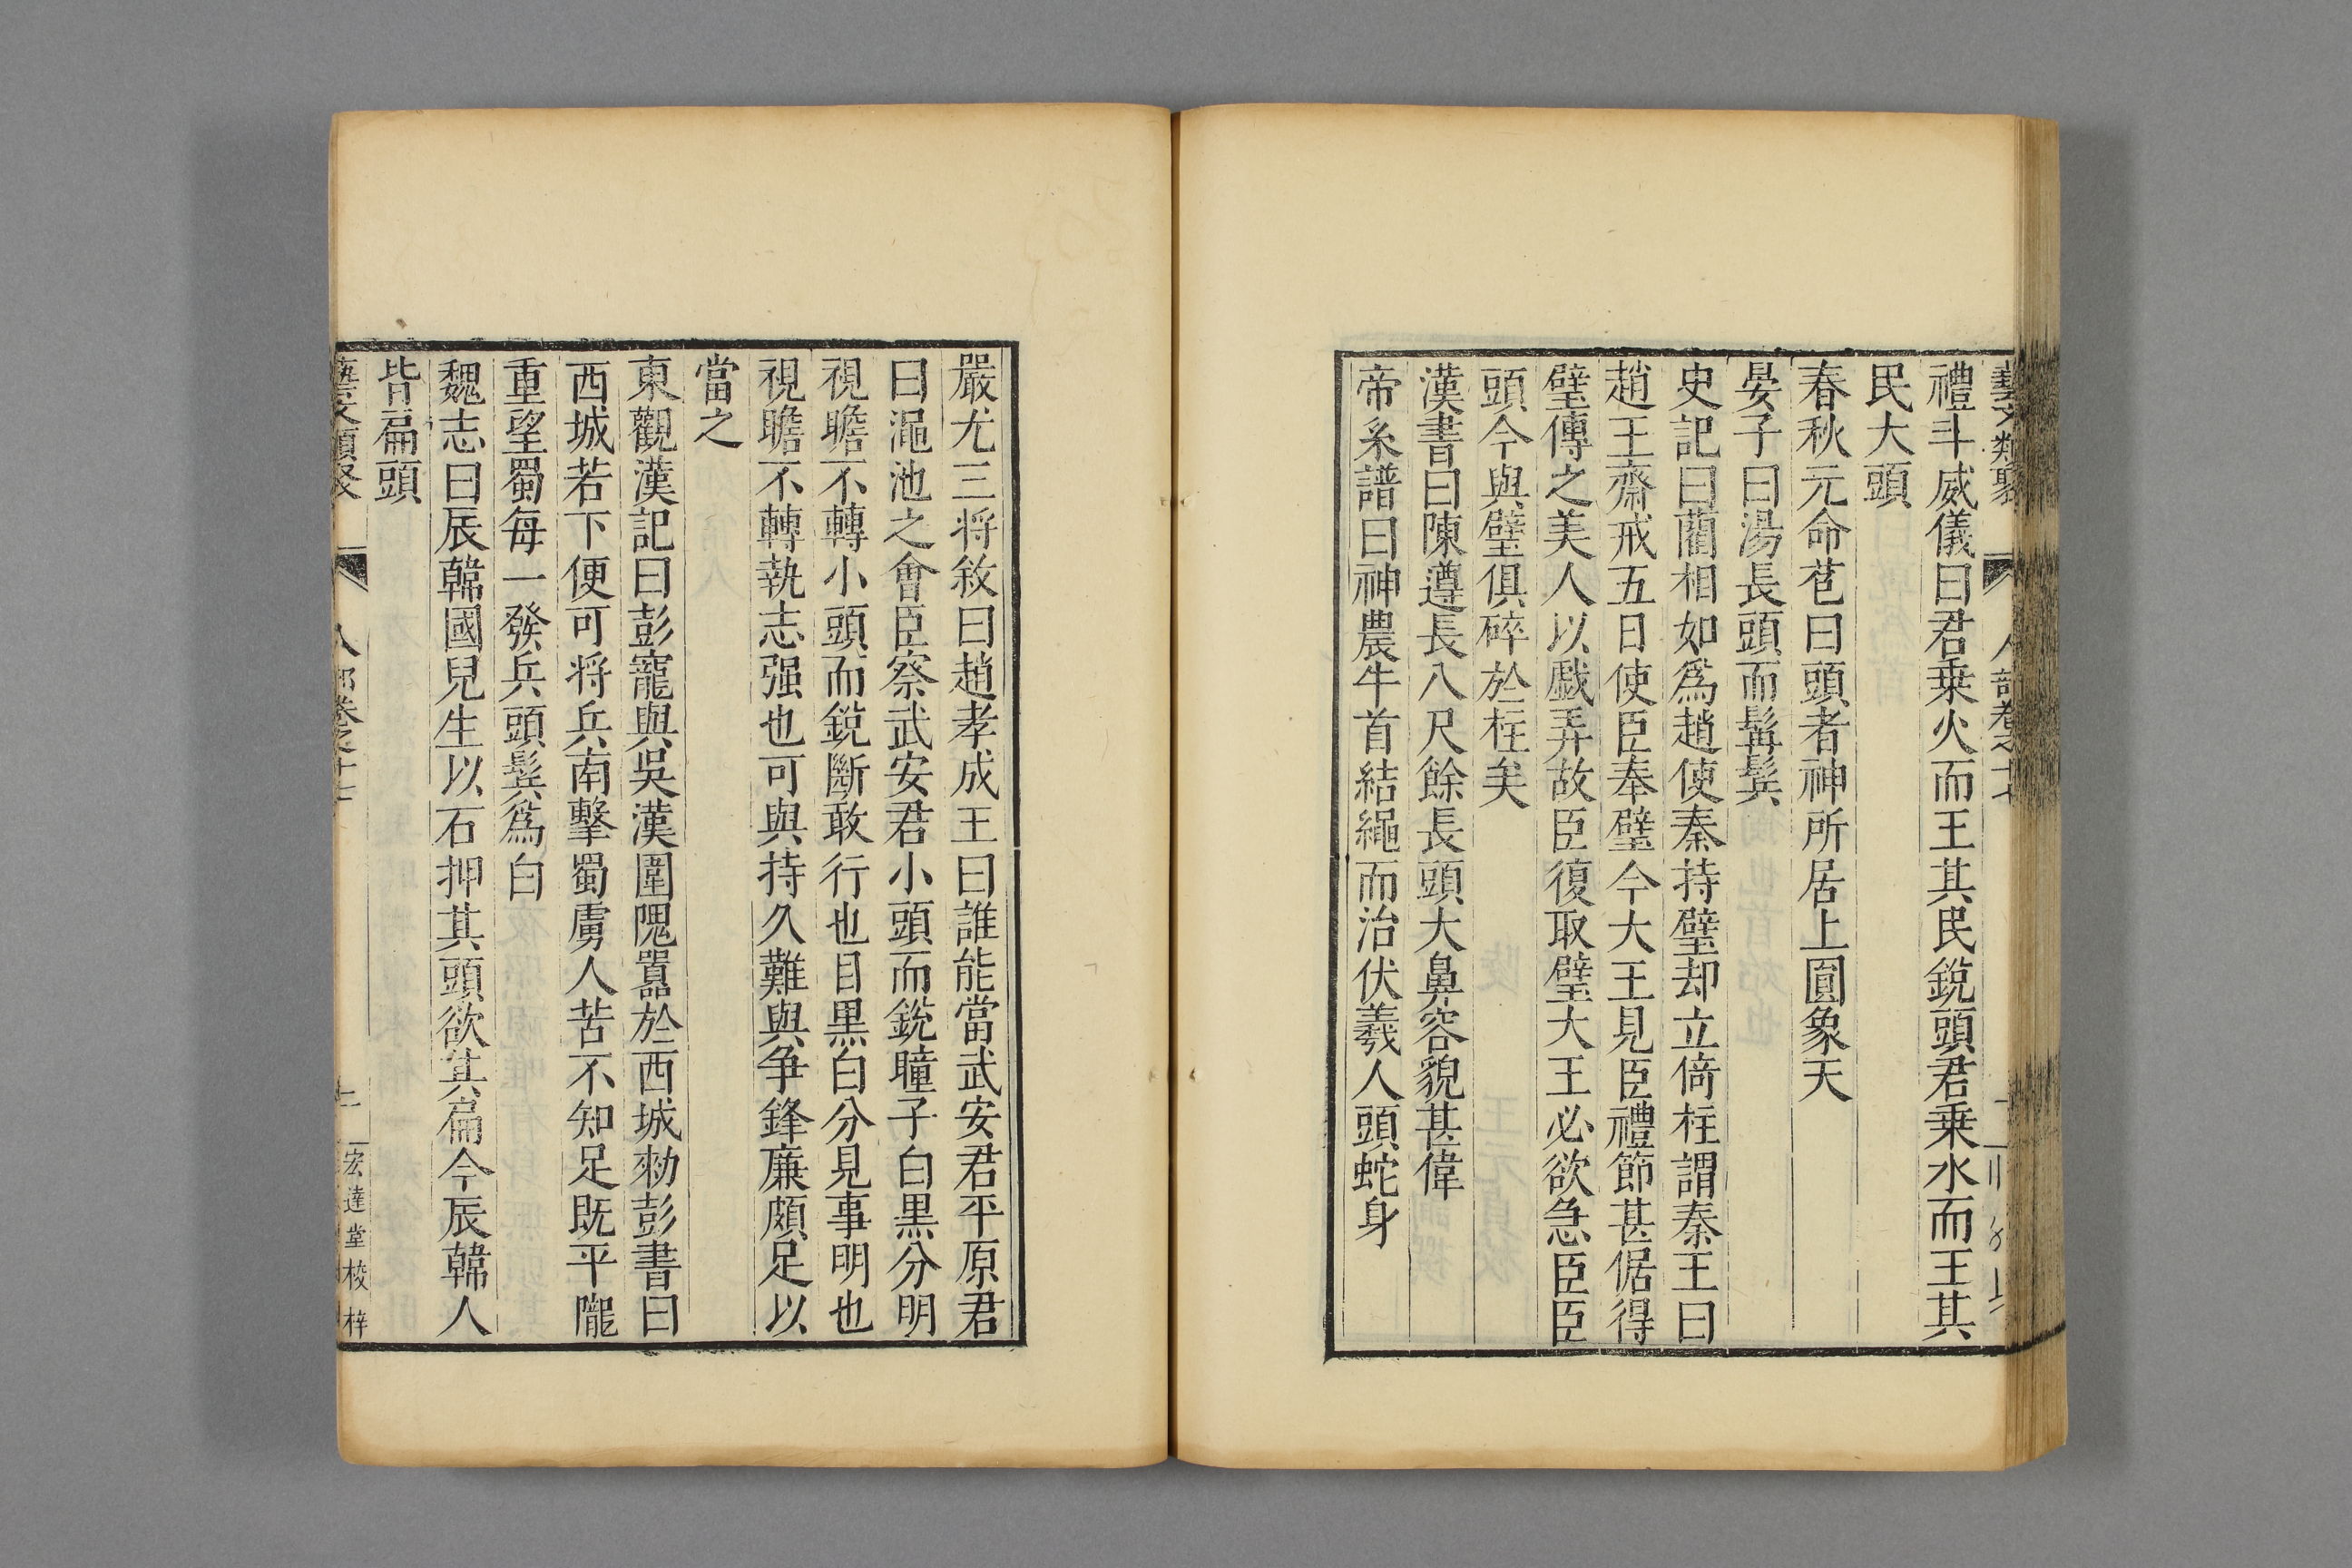 藝文類聚 人部卷之十七
禮斗威儀曰君乗火而王其民銳頭君乗水而王其
民大頭
春秋元命苞曰頭者神所居上圓象天
晏子曰湯長頭而髯鬂
史記曰藺相如爲趙使秦持璧却立倚柱謂秦王曰
趙王齋戒五日使臣奉璧今大王見臣禮節甚倨得
璧傳之美人以戲弄故臣復取璧大王必欲急臣臣
頭今與璧俱碎於柱矣
漢書曰陳遵長八尺餘長頭大鼻容貌甚偉
帝系譜曰神農牛首結繩而治伏羲人頭蛇身
嚴尤三将敘曰趙孝成王曰誰能當武安君平原君
曰澠池之會臣察武安君小頭而銳瞳子白黒分明
視瞻不轉小頭而銳斷敢行也目黒白分見事明也
視瞻不轉執志强也可與持久難與争鋒廉頗足以
當之
東觀漢記曰彭寵與吳漢圍隗囂於西城勑彭書曰
西城若下便可将兵南擊蜀虜人苦不知足既平隴
重望蜀每一發兵頭鬂爲白
魏志曰辰韓國兒生以石押其頭欲其扁今辰韓人
皆扁頭
藝文類聚 人部卷之十七 二 宏達堂校梓